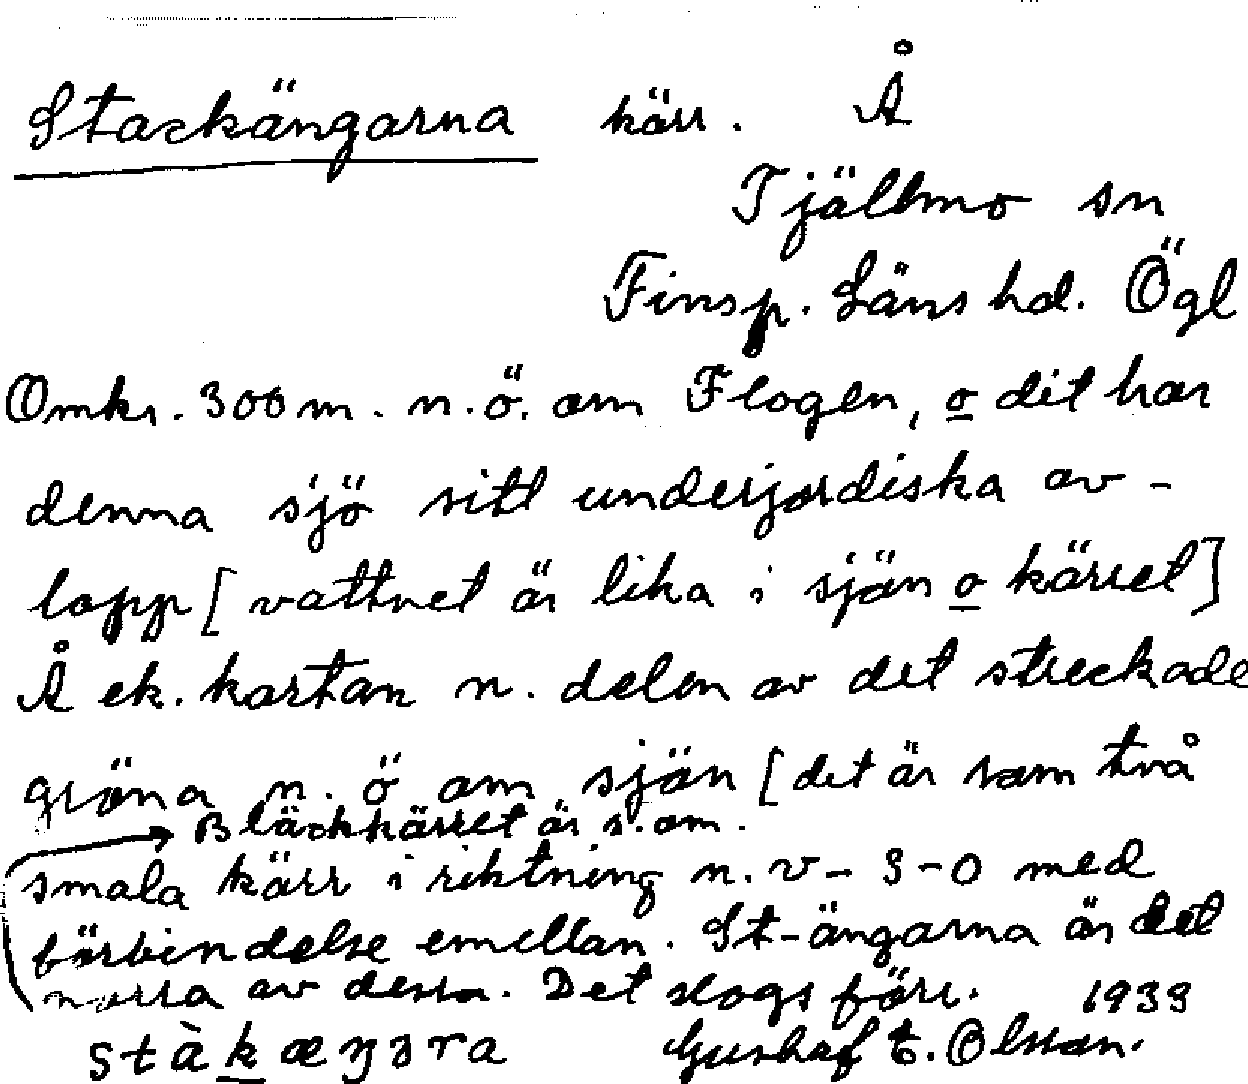 Stackängarna kärr. Å
Tjällmo sn
Finsp. Läns hd. Ögl
Omkr. 300 m. n.ö. om Flogen, o dit har
denna sjö sitt underjordiska av-
lopp [vattnet är lika i sjön o kärret]
Å ek. kartan n. delen av det streckade
gröna n. ö om sjön [det är som två
→ Bläckkärret är s. om.
smala kärr i riktning n.v - S-O med
förbindelse emellan. St-ängarna är det
norra av dessa. Det slogs förr. 1939
stàkæŋɜra Gushaf E. Olsson.